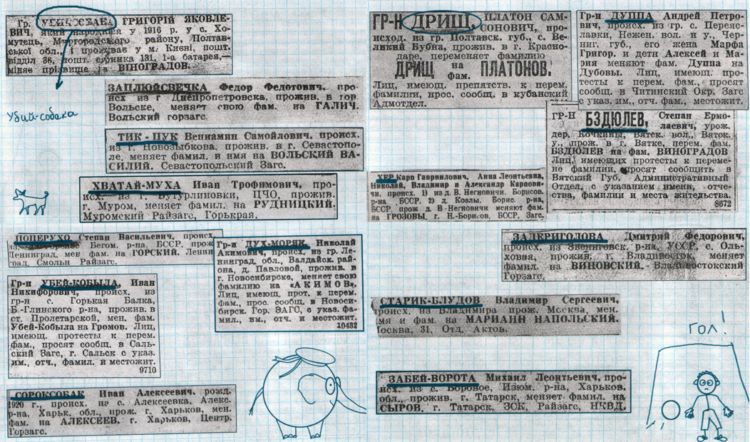 Гр. УБИЙСОБАКА ГРИГОРІЙ ЯКОВЛЕ-
ВИЧ, який народився у 1916 р. у с. Хо-
мутець, Миргородського району, Полтав-
ської обл. і проживав у м. Києві, пошт.
відділ 36, пошт. скринька 131, 1-а батарея,—
міняє прізвище на ВИНОГРАДОВ.
Убий-собака
ЗАПЛЮЙСВЕЧКА Федор Федотович, про-
исх из г. Днепропетровска, прожив. в гор.
Вольске, меняет свою фам. на ГАЛИЧ.
Вольский горзагс.
ТИК-ПУК Вениамин Самойлович, происх.
из г. Новозыбкова, прожив. в г. Севастопо-
ле, меняет фамил. и имя на ВОЛЬСКИЙ ВА-
СИЛИЙ. Севастопольский Загс.
ХВАТАЙ-МУХА Иван Трофимович, про-
исх. из г. Бутурлиновки, ЦЧО, прожив.
г. Муром, меняет фамил. на РУДНИЦКИЙ.
Муромский Райзагс, Горькрая.
ПОПЕРУХО Степан Васильевич, происх
Бегом. р-на, БССР, прож.
Ленинград, мен фам. на ГОРСКИЙ. Ленин
град. Смольн Райзагс.
Гр-н УБЕЙ-КОБЫЛА, Иван
Никифорович, происх. из
гр-н с. Горькая Балка,
Б.-Глинского р-на, прожив. в
ст. Пролетарской, мен. фам.
Убей-Кобыла на Громов. Лиц,
имеющ. протесты к перем.
фам., просят сообщ. в Саль-
ский Загс, г. Сальск с указ.
им., отч., фамил. и местожит.
9710
Гр-н ДУХ-МОРИК, Николай
Акимович, происх. из гр. Ле-
нинград, обл., Валдайск. рай-
она, д. Павловой, прожив. в
г. Новосибирске, меняет свою
фамилию на «АКИМОВ».
Лиц, имеющ. прот. к перем.
фам., прос. сообщ. в Новоси-
бирск. Гор. ЗАГС, с указ. фа-
мил., вм., отч. и местожит.
10482
СОРОКСОБАК Иван Алексеевич. рожд.
1920 г., происх. из с. Алексеевка, Алекс.
р-на, Харьк. обл., прож. г. Харьков, мен.
фам. на АЛЕКСЕЕВ. г. Харьков, Центр.
Горзагс.
ГР-Н ДРИЩ, ПЛАТОН САМ-
СОНОВИЧ, про-
исход. из гр. г. Полтавск. губ., с. Ве-
ликий Бубна, прожив. в г. Красно-
даре, переменяет фамилию
ДРИЩ НА фам. ПЛАТОНОВ.
Лиц, имеющих препятств. к перем.
фамилии, прос. сообщ. в кубанск.
Адмотдел.
Гр-н ДУППА Андрей Петро-
вич, происх. из гр. с. Переяс-
лавки, Нежен. вол. и у., Черниг. губ., его жена Марфа
Григор. и дети Алексей и Ма-
рия меняют фам. Дуппа на
Дубовы. Лиц, имеющ. про-
тесты к перем. фам., просят
сообщ. в Читинский Окр. Загс
с указ. им., отч. фам., местожит.
ГР-Н БЗДЮЛЕВ, Степан Ермо-
лаевич, урож.
дер. Кочкины, Вятск. вол., Вятск.
у., прож. в г. Вятке, перем. фам.
БЗДЮЛЕВ на фам. ВИНОГРАДОВ
Лиц, имеющих протесты к переме-
не фамилии, просят сообщить в
Вятский Губ. Административный
Отдел, с указанием имени, отче-
ства, фамилии и места жительства.
8672
ХЕР Карп Гаврилович, Анна Леонтьевна,
Николай, Владимир и Александр Карпови-
чи, происх. 1) из д. Негновичи, Борисов.
р-на, БССР, 2) д. Ковалы, Борис. р-на,
БССР, прож. д. В-Негновичи меняют фам.
на ГРОЗОВЫ, г. Н.-Борисов, БССР, Загс.
ЗАДЕРИГОЛОВА Дмитрий Федорович,
происх. из Звенигоск. р-на, УССР, с. Оль-
ховая, прожив. г. Владивосток, меняет
фамил. на ВИНОВСКИЙ. Владивостокский
Горзагс.
СТАРИК-БЛУДОВ Владимир Сергеевич,
происх. из Владимира прож. Москва, мен.
имя и фам. на МАРИАНН НАПОЛЬСКИЙ.
Москва, 31, Отд. Актов.
ГОЛ!
ЗАБЕЙ-ВОРОТА Михаил Леонтьевич, про-
исх. из с. Боровое, Изюм. р-на, Харьков.
обл., прожив. г. Татарск, меняет фамил. на
СЫРОЙ, г. Татарск, ЗСК, Райзагс, НКВД.